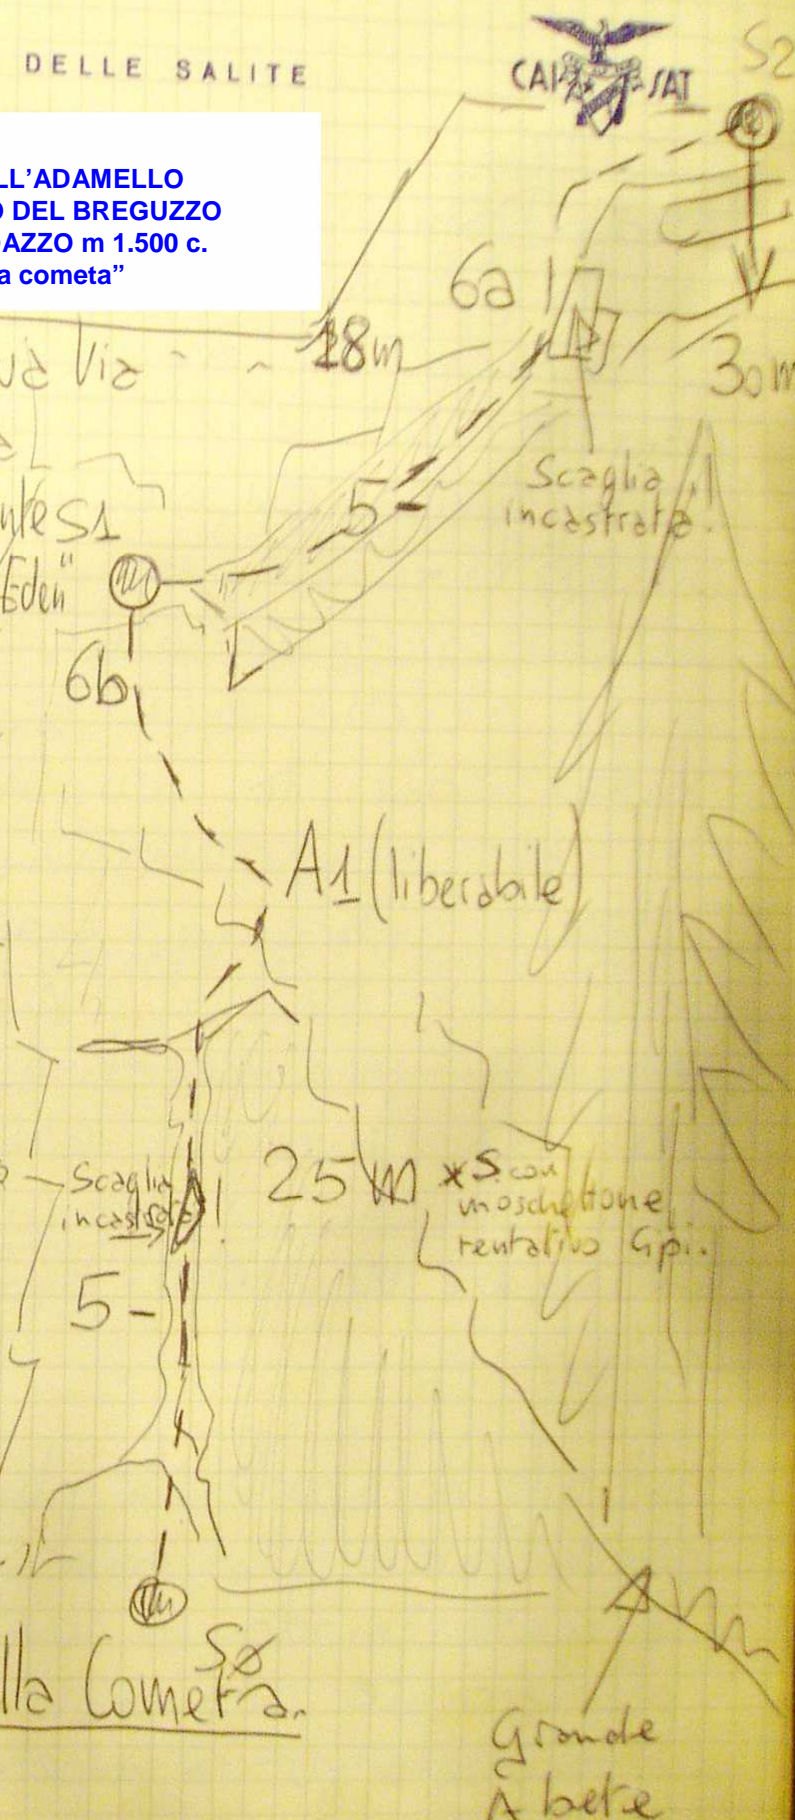 DELLE SALITE
CAI SAT
S2
LL'ADAMELLO
O DEL BREGUZZO
DAZZO m 1.500 c.
a cometa”
6a
Via
18m
30 m
Scaglia
incastrata!
5-
S1
Eden"
6b
A1 (liberabile)
Scaglia
incastrata!
25 m
x S. con
moschettone
tentativo Gpi.
5-
S0
lla Cometa.
Grande
Abete